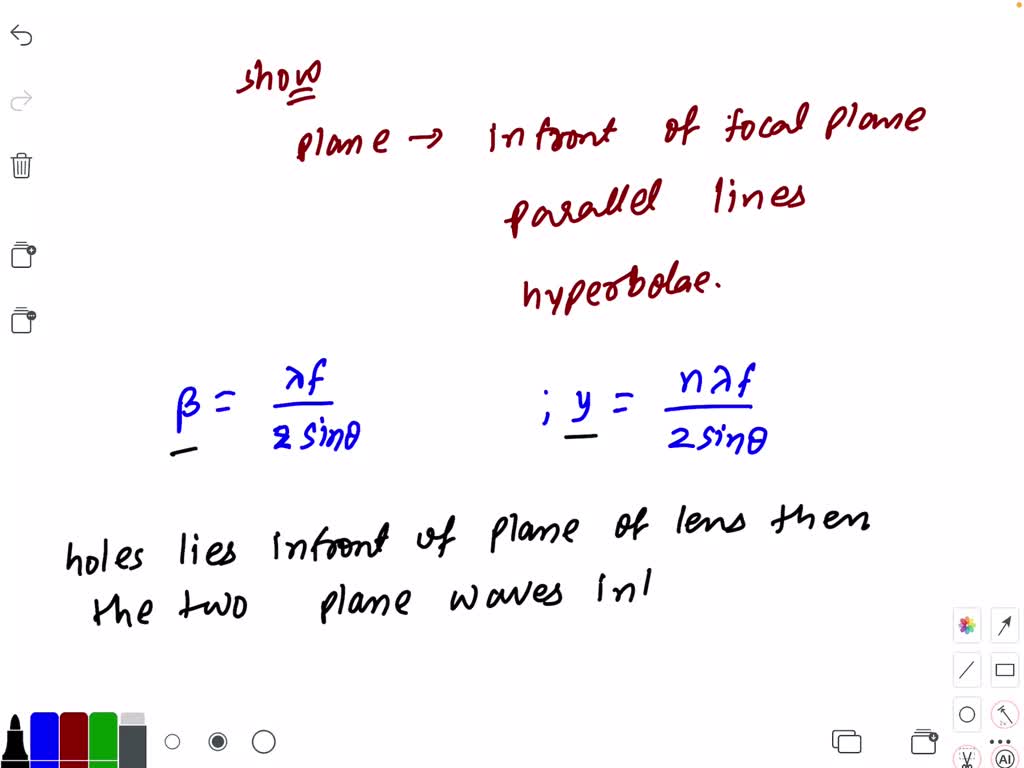 show
plane → infront of focal plane
parallel lines
hyperbolae.
β = λf / 2 sinθ ; y = nλf / 2 sinθ
holes lies infront of plane of lens then
the two plane waves in
AI